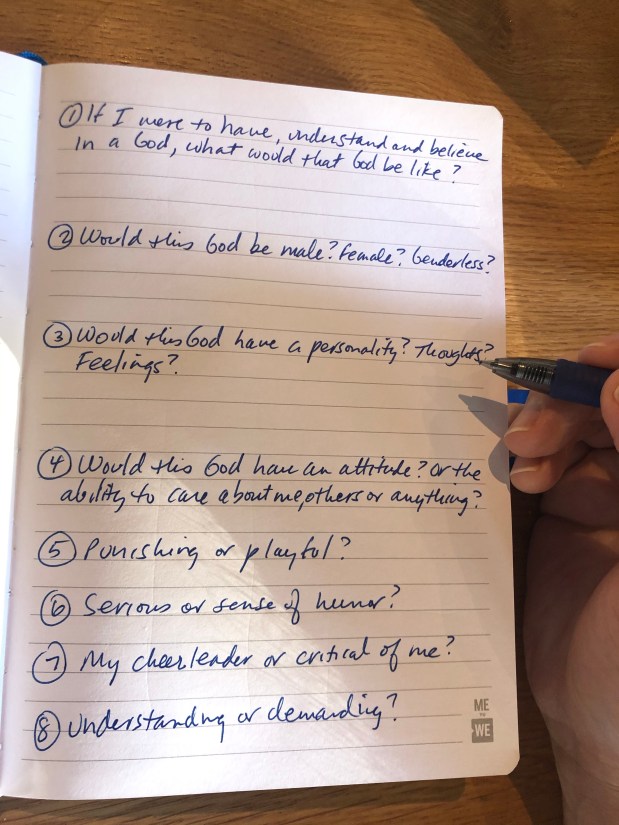 ① If I were to have, understand and believe
in a God, what would that God be like?
② Would this God be male? Female? Genderless?
③ Would this God have a personality? Thoughts?
Feelings?
④ Would this God have an attitude? Or the
ability to care about me, others or anything?
⑤ Punishing or playful?
⑥ Serious or sense of humor?
⑦ My cheerleader or critical of me?
⑧ Understanding or demanding?
ME
TO
WE